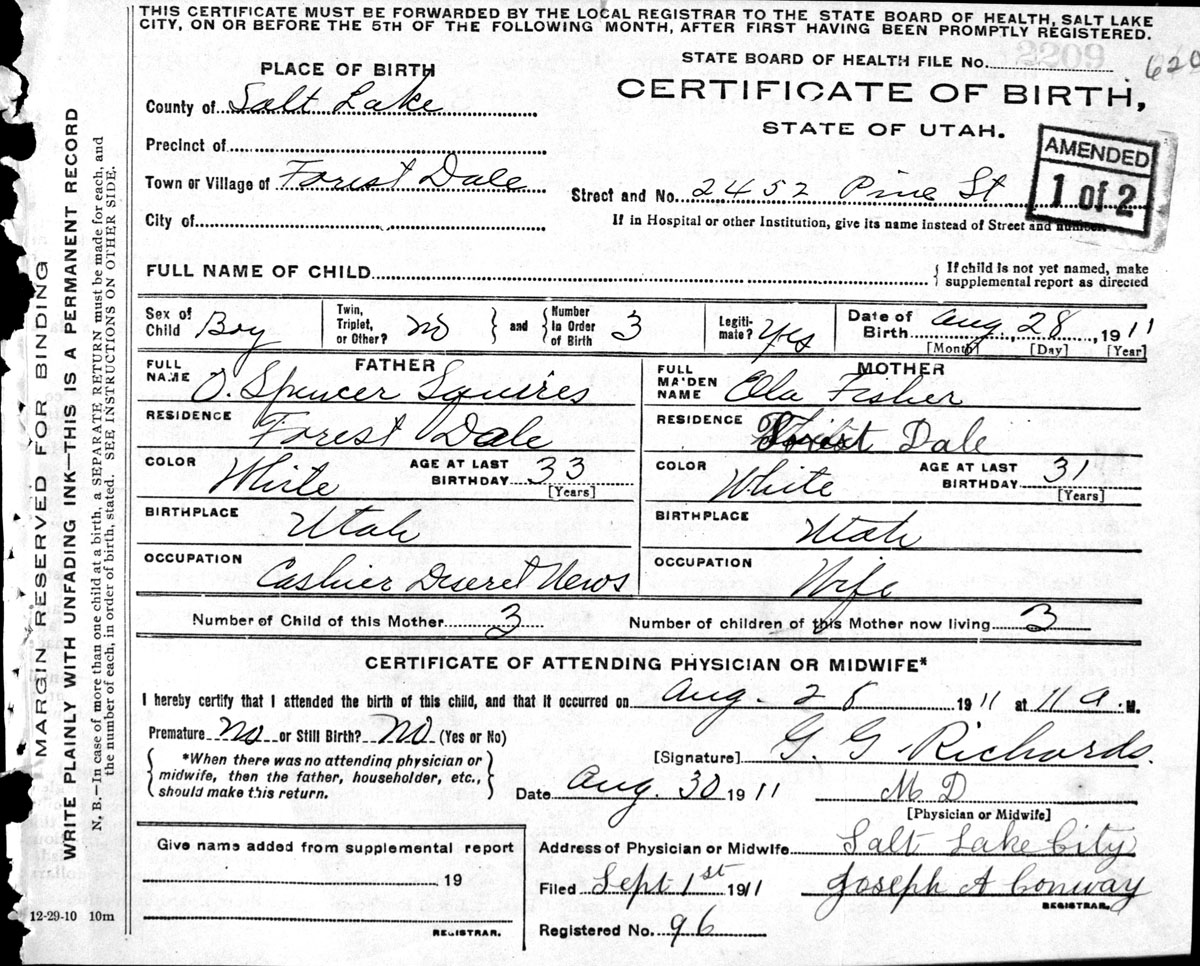 THIS CERTIFICATE MUST BE FORWARDED BY THE LOCAL REGISTRAR TO THE STATE BOARD OF HEALTH, SALT LAKE
CITY, ON OR BEFORE THE 5TH OF THE FOLLOWING MONTH, AFTER FIRST HAVING BEEN PROMPTLY REGISTERED.
STATE BOARD OF HEALTH FILE No. 2209
620
PLACE OF BIRTH
CERTIFICATE OF BIRTH,
STATE OF UTAH.
County of Salt Lake
Precinct of
Town or Village of Forest Dale
Street and No. 2452 Pine St
AMENDED
1 of 2
City of
If in Hospital or other Institution, give its name instead of Street and number.
FULL NAME OF CHILD
If child is not yet named, make
supplemental report as directed
Sex of
Child Boy
Twin,
Triplet,
or Other? No
and
Number
in Order
of Birth 3
Legiti-
mate? Yes
Date of
Birth Aug. 28, 1911
[Month] [Day] [Year]
FATHER
FULL
NAME O. Spencer Squires
RESIDENCE Forest Dale
COLOR White
AGE AT LAST
BIRTHDAY 33
[Years]
BIRTHPLACE Utah
OCCUPATION Cashier Deseret News
MOTHER
FULL
MAIDEN
NAME Ola Fisher
RESIDENCE Forest Dale
COLOR White
AGE AT LAST
BIRTHDAY 31
[Years]
BIRTHPLACE Utah
OCCUPATION Wife
Number of Child of this Mother 3
Number of children of this Mother now living 3
CERTIFICATE OF ATTENDING PHYSICIAN OR MIDWIFE*
I hereby certify that I attended the birth of this child, and that it occurred on Aug. 28 1911 at 11 a. M.
Premature No or Still Birth? No (Yes or No)
[Signature] G. G. Richards.
*When there was no attending physician or
midwife, then the father, householder, etc.,
should make this return.
Date Aug. 30 1911
M D
[Physician or Midwife]
Give name added from supplemental report
19
REGISTRAR.
Address of Physician or Midwife Salt Lake City
Filed Sept 1st 1911
Joseph A Conway
REGISTRAR.
Registered No. 96
12-29-10 10m
MARGIN RESERVED FOR BINDING
WRITE PLAINLY WITH UNFADING INK—THIS IS A PERMANENT RECORD
N. B.—In case of more than one child at a birth, a SEPARATE RETURN must be made for each, and
the number of each, in order of birth, stated. SEE INSTRUCTIONS ON OTHER SIDE.